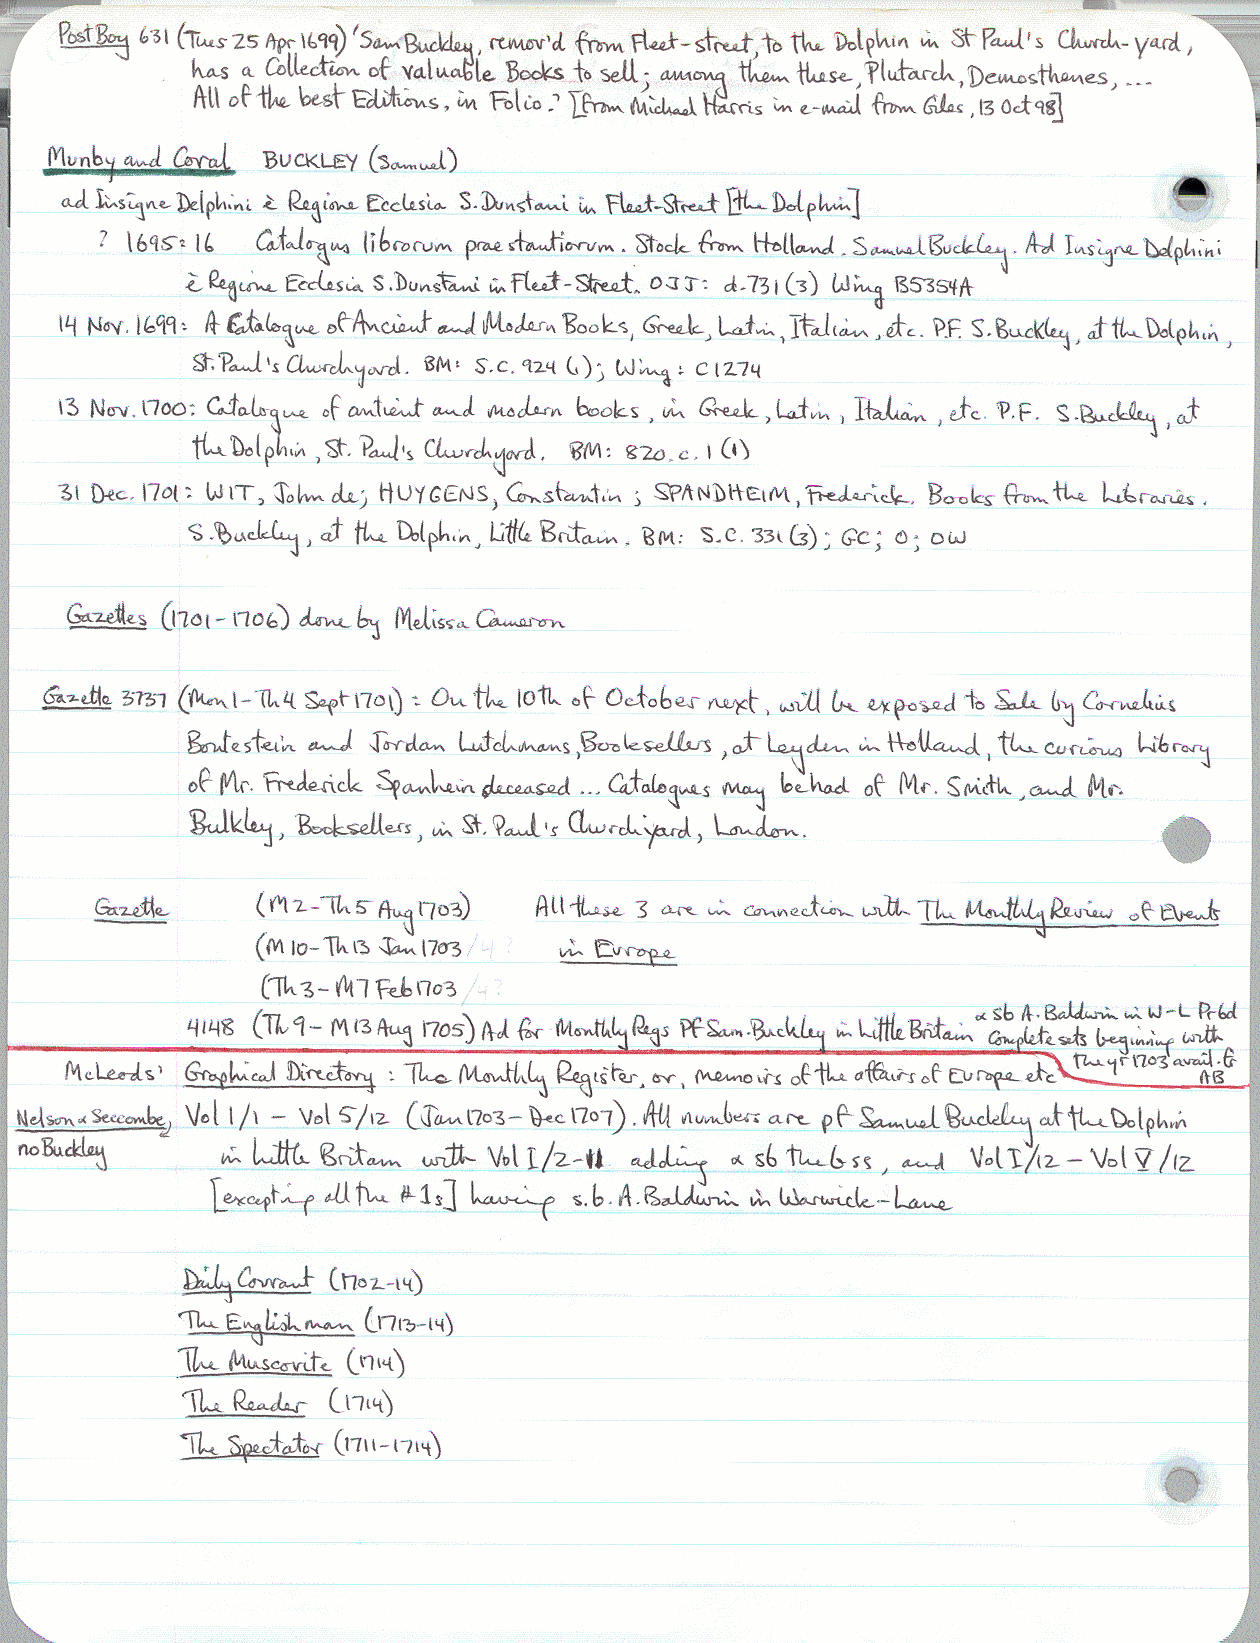 Post Boy 631 (Tues 25 Apr 1699) 'Sam Buckley, remov'd from Fleet-street, to the Dolphin in St Paul's Church-yard,
has a Collection of valuable Books to sell; among them these, Plutarch, Demosthenes, ...
All of the best Editions, in Folio.' [from Michael Harris in e-mail from Giles, 13 Oct 98]
Munby and Coral BUCKLEY (Samuel)
ad Insigne Delphini è Regione Ecclesia S. Dunstani in Fleet-Street [the Dolphin]
? 1695: 16 Catalogus librorum praestantiorum. Stock from Holland. Samuel Buckley. Ad Insigne Delphini
è Regione Ecclesia S. Dunstani in Fleet-Street. OJJ: d.731(3) Wing B5354A
14 Nov. 1699: A Catalogue of Ancient and Modern Books, Greek, Latin, Italian, etc. P.F. S. Buckley, at the Dolphin,
St. Paul's Churchyard. BM: S.C. 924 (1); Wing: C1274
13 Nov. 1700: Catalogue of antient and modern books, in Greek, Latin, Italian, etc. P.F. S. Buckley, at
the Dolphin, St. Paul's Churchyard. BM: 820.c.1(1)
31 Dec. 1701: WIT, John de; HUYGENS, Constantin; SPANDHEIM, Frederick. Books from the Libraries.
S. Buckley, at the Dolphin, Little Britain. BM: S.C. 331(3); GC; O; OW
Gazettes (1701-1706) done by Melissa Cameron
Gazette 3737 (Mon 1 - Th 4 Sept 1701): On the 10th of October next, will be exposed to Sale by Cornelius
Boutestein and Jordan Lutchmans, Booksellers, at Leyden in Holland, the curious Library
of Mr. Frederick Spanhein deceased ... Catalogues may be had of Mr. Smith, and Mr.
Bulkley, Booksellers, in St. Paul's Churchyard, London.
Gazette (M 2 - Th 5 Aug 1703) All these 3 are in connection with The Monthly Review of Events
(M 10 - Th 13 Jan 1703/4? in Europe
(Th 3 - M 7 Feb 1703/4?
4148 (Th 9 - M 13 Aug 1705) Ad for Monthly Regs Pf Sam. Buckley in Little Britain & sb A. Baldwin in W-L Pr 6d
Complete sets beginning with
the yr 1703 avail. fr
AB
McLeods' Graphical Directory: The Monthly Register, or, memoirs of the affairs of Europe etc
Nelson & Seccombe, Vol 1/1 - Vol 5/12 (Jan 1703 - Dec 1707). All numbers are pf Samuel Buckley at the Dolphin
no Buckley in Little Britain with Vol I/2-11 adding & sb the bss, and Vol I/12 - Vol V/12
[excepting all the #1s] having s.b. A. Baldwin in Warwick-Lane
Daily Courant (1702-14)
The Englishman (1713-14)
The Muscovite (1714)
The Reader (1714)
The Spectator (1711-1714)